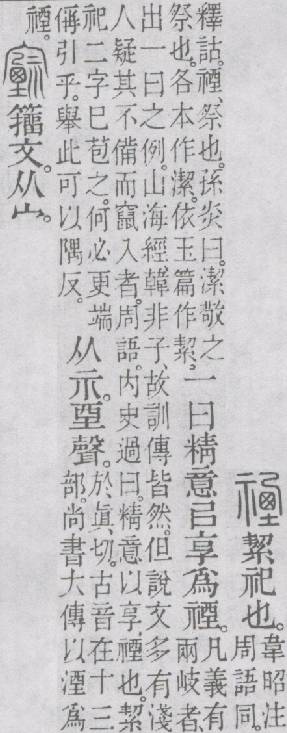 禋 絜祀也。韋昭注周語同。
釋詁。禋、祭也。孫炎曰。潔敬之祭也。各本作潔。依玉篇作絜。一曰精意㠯享爲禋。凡義有兩岐者、
出一曰之例。山海經韓非子、故訓傳皆然。但說文多有淺人疑其不備而竄入者。周語。內史過曰。精意以享、禋也。絜
祀二字已苞之。何必更端偁引乎。舉此可以隅反。从示。垔聲。於眞切。古音在十三部。尚書大傳以湮爲
禋。籒文从宀。